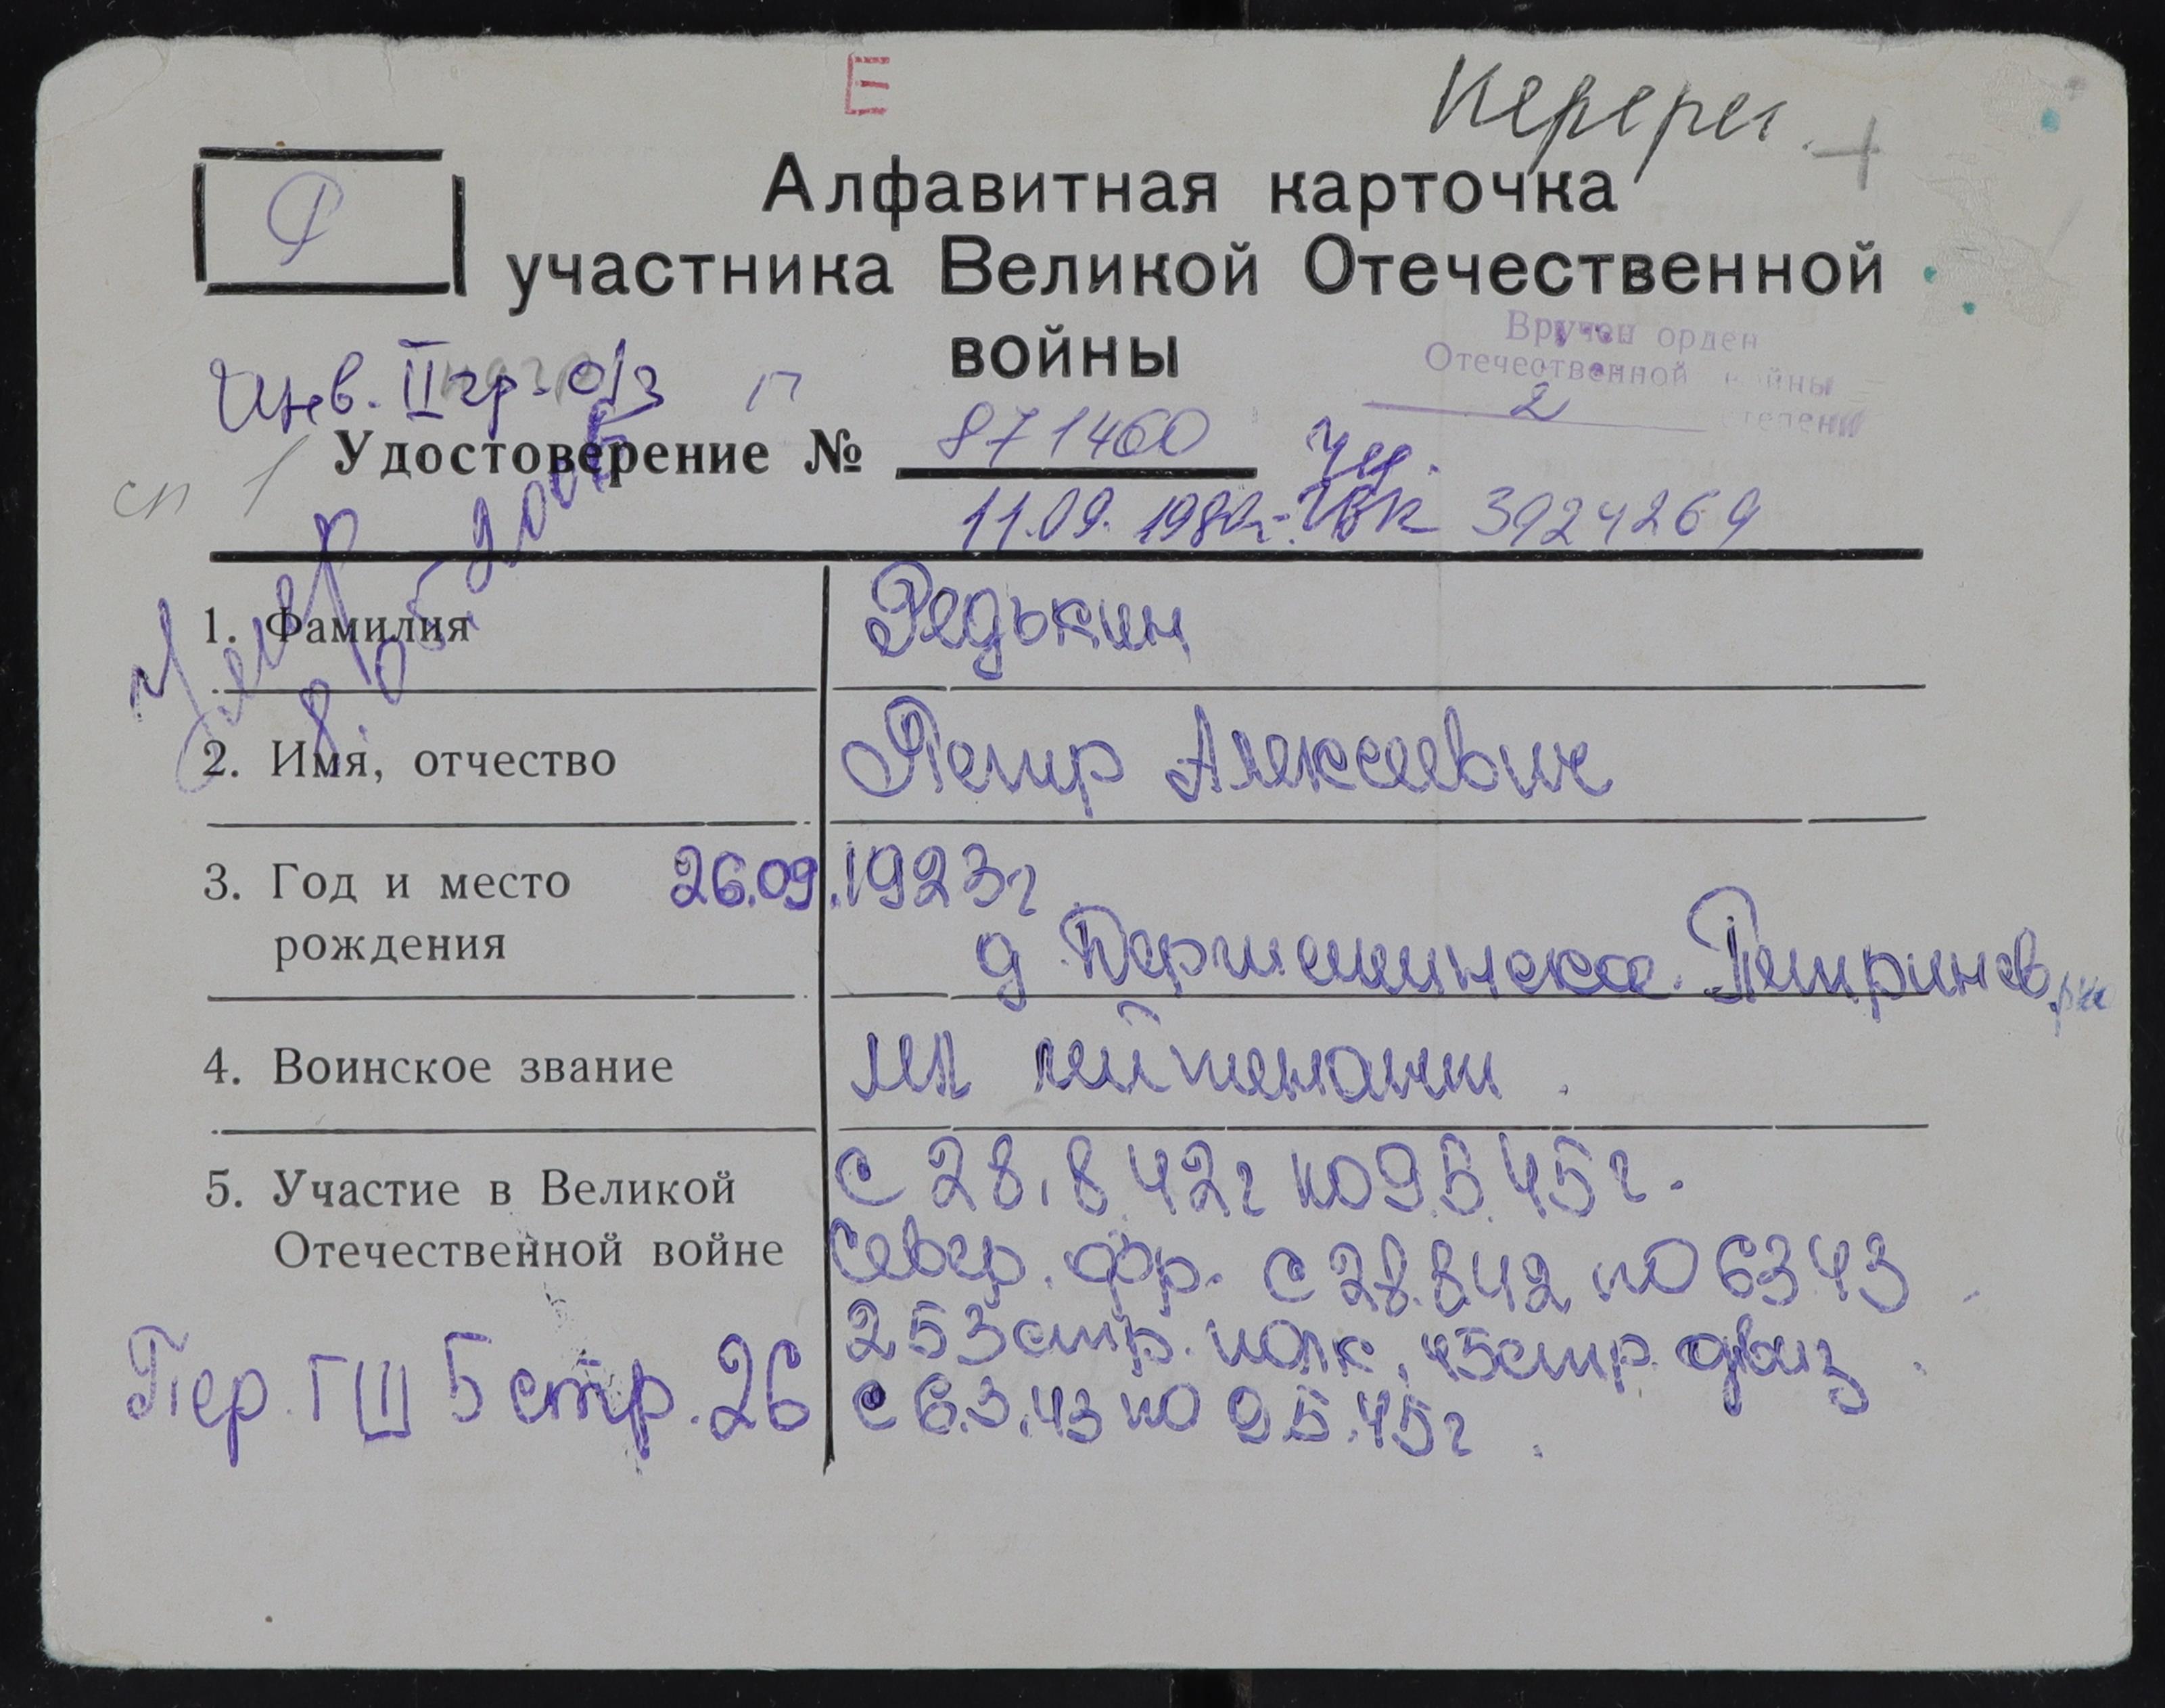 Е
Перерег. +
Р
Алфавитная карточка
участника Великой Отечественной
войны
Вручен орден
Отечественной войны
2 степени
Инв. II гр. о/з П
Удостоверение № 871460
сп 1
11.09. 1980г. ЧВК 3924269
1. Фамилия Редькин
2. Имя, отчество Петр Алексеевич
3. Год и место 26.09.1923г
рождения д Петринев
4. Воинское звание мл лейтенант.
5. Участие в Великой с 28.8.42г по 9.5.45г.
Отечественной войне Север. фр. с 28.8.42 по 6.3.43
253 стр. полк, 45 стр. дивиз.
Пер. ГШ 5 стр. 26 с 6.3.43 по 9.5.45г.